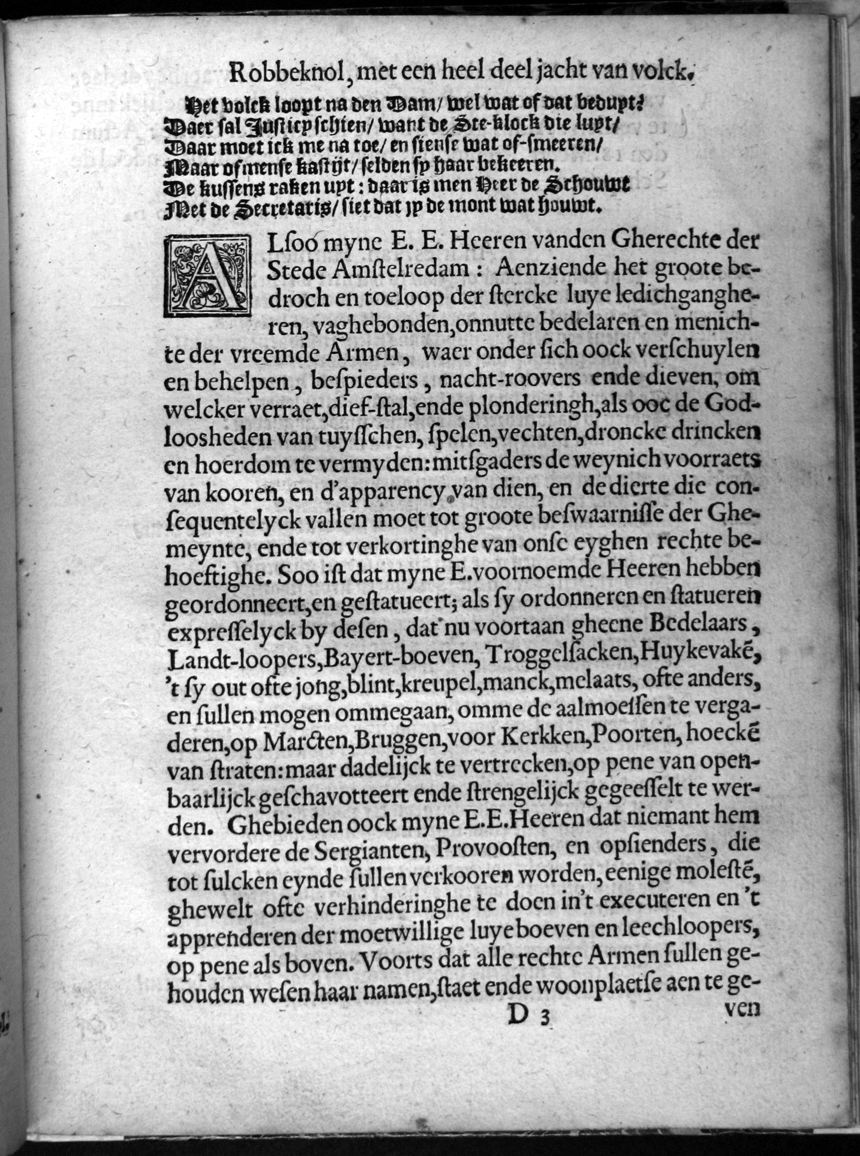 Robbeknol, met een heel deel jacht van volck.
Het volck loopt na den Dam/ wel wat of dat beduyt?
Daer sal Justicy schien/ want de Ste-klock die luyt/
Daar moet ick me na toe/ en sien se wat of-smeeren/
Maar of mense kastijt/ selden sy haar bekeeren.
De kussens raken uyt: daar is men Heer de Schouwt
Met de Secretaris/ siet dat jy de mont wat houwt.
ALſoo myne E. E. Heeren vanden Gherechte der
Stede Amſtelredam : Aenziende het groote be-
droch en toeloop der ſtercke luye ledichganghe-
ren, vaghebonden,onnutte bedelaren en menich-
te der vreemde Armen, waer onder ſich oock verſchuylen
en behelpen, beſpieders, nacht-roovers ende dieven, om
welcker verraet,dief-ſtal,ende plonderingh,als ooc de God-
loosheden van tuyſſchen, ſpelen,vechten,droncke drincken
en hoerdom te vermyden:mitſgaders de weynich voorraets
van kooren, en d'apparency van dien, en de dierte die con-
ſequentelyck vallen moet tot groote beſwaarniſſe der Ghe-
meynte, ende tot verkortinghe van onſe eyghen rechte be-
hoeftighe. Soo iſt dat myne E.voornoemde Heeren hebben
geordonneert,en geſtatueert; als ſy ordonneren en ſtatueren
expreſſelyck by deſen, dat nu voortaan gheene Bedelaars,
Landt-loopers,Bayert-boeven, Troggelſacken,Huykevakē,
't ſy out ofte jong,blint,kreupel,manck,melaats, ofte anders,
en ſullen mogen ommegaan, omme de aalmoeſſen te verga-
deren,op Marcten,Bruggen,voor Kerkken,Poorten, hoeckē
van ſtraten:maar dadelijck te vertrecken,op pene van open-
baarlijck geſchavotteert ende ſtrengelijck gegeeſſelt te wer-
den. Ghebieden oock myne E.E.Heeren dat niemant hem
vervordere de Sergianten, Provooſten, en opſienders, die
tot ſulcken eynde ſullen verkooren worden,eenige moleſtē,
ghewelt ofte verhinderinghe te doen in't executeren en 't
apprenderen der moetwillige luye boeven en leechloopers,
op pene als boven. Voorts dat alle rechte Armen ſullen ge-
houden weſen haar namen,ſtaet ende woonplaetſe aen te ge-
D 3 ven